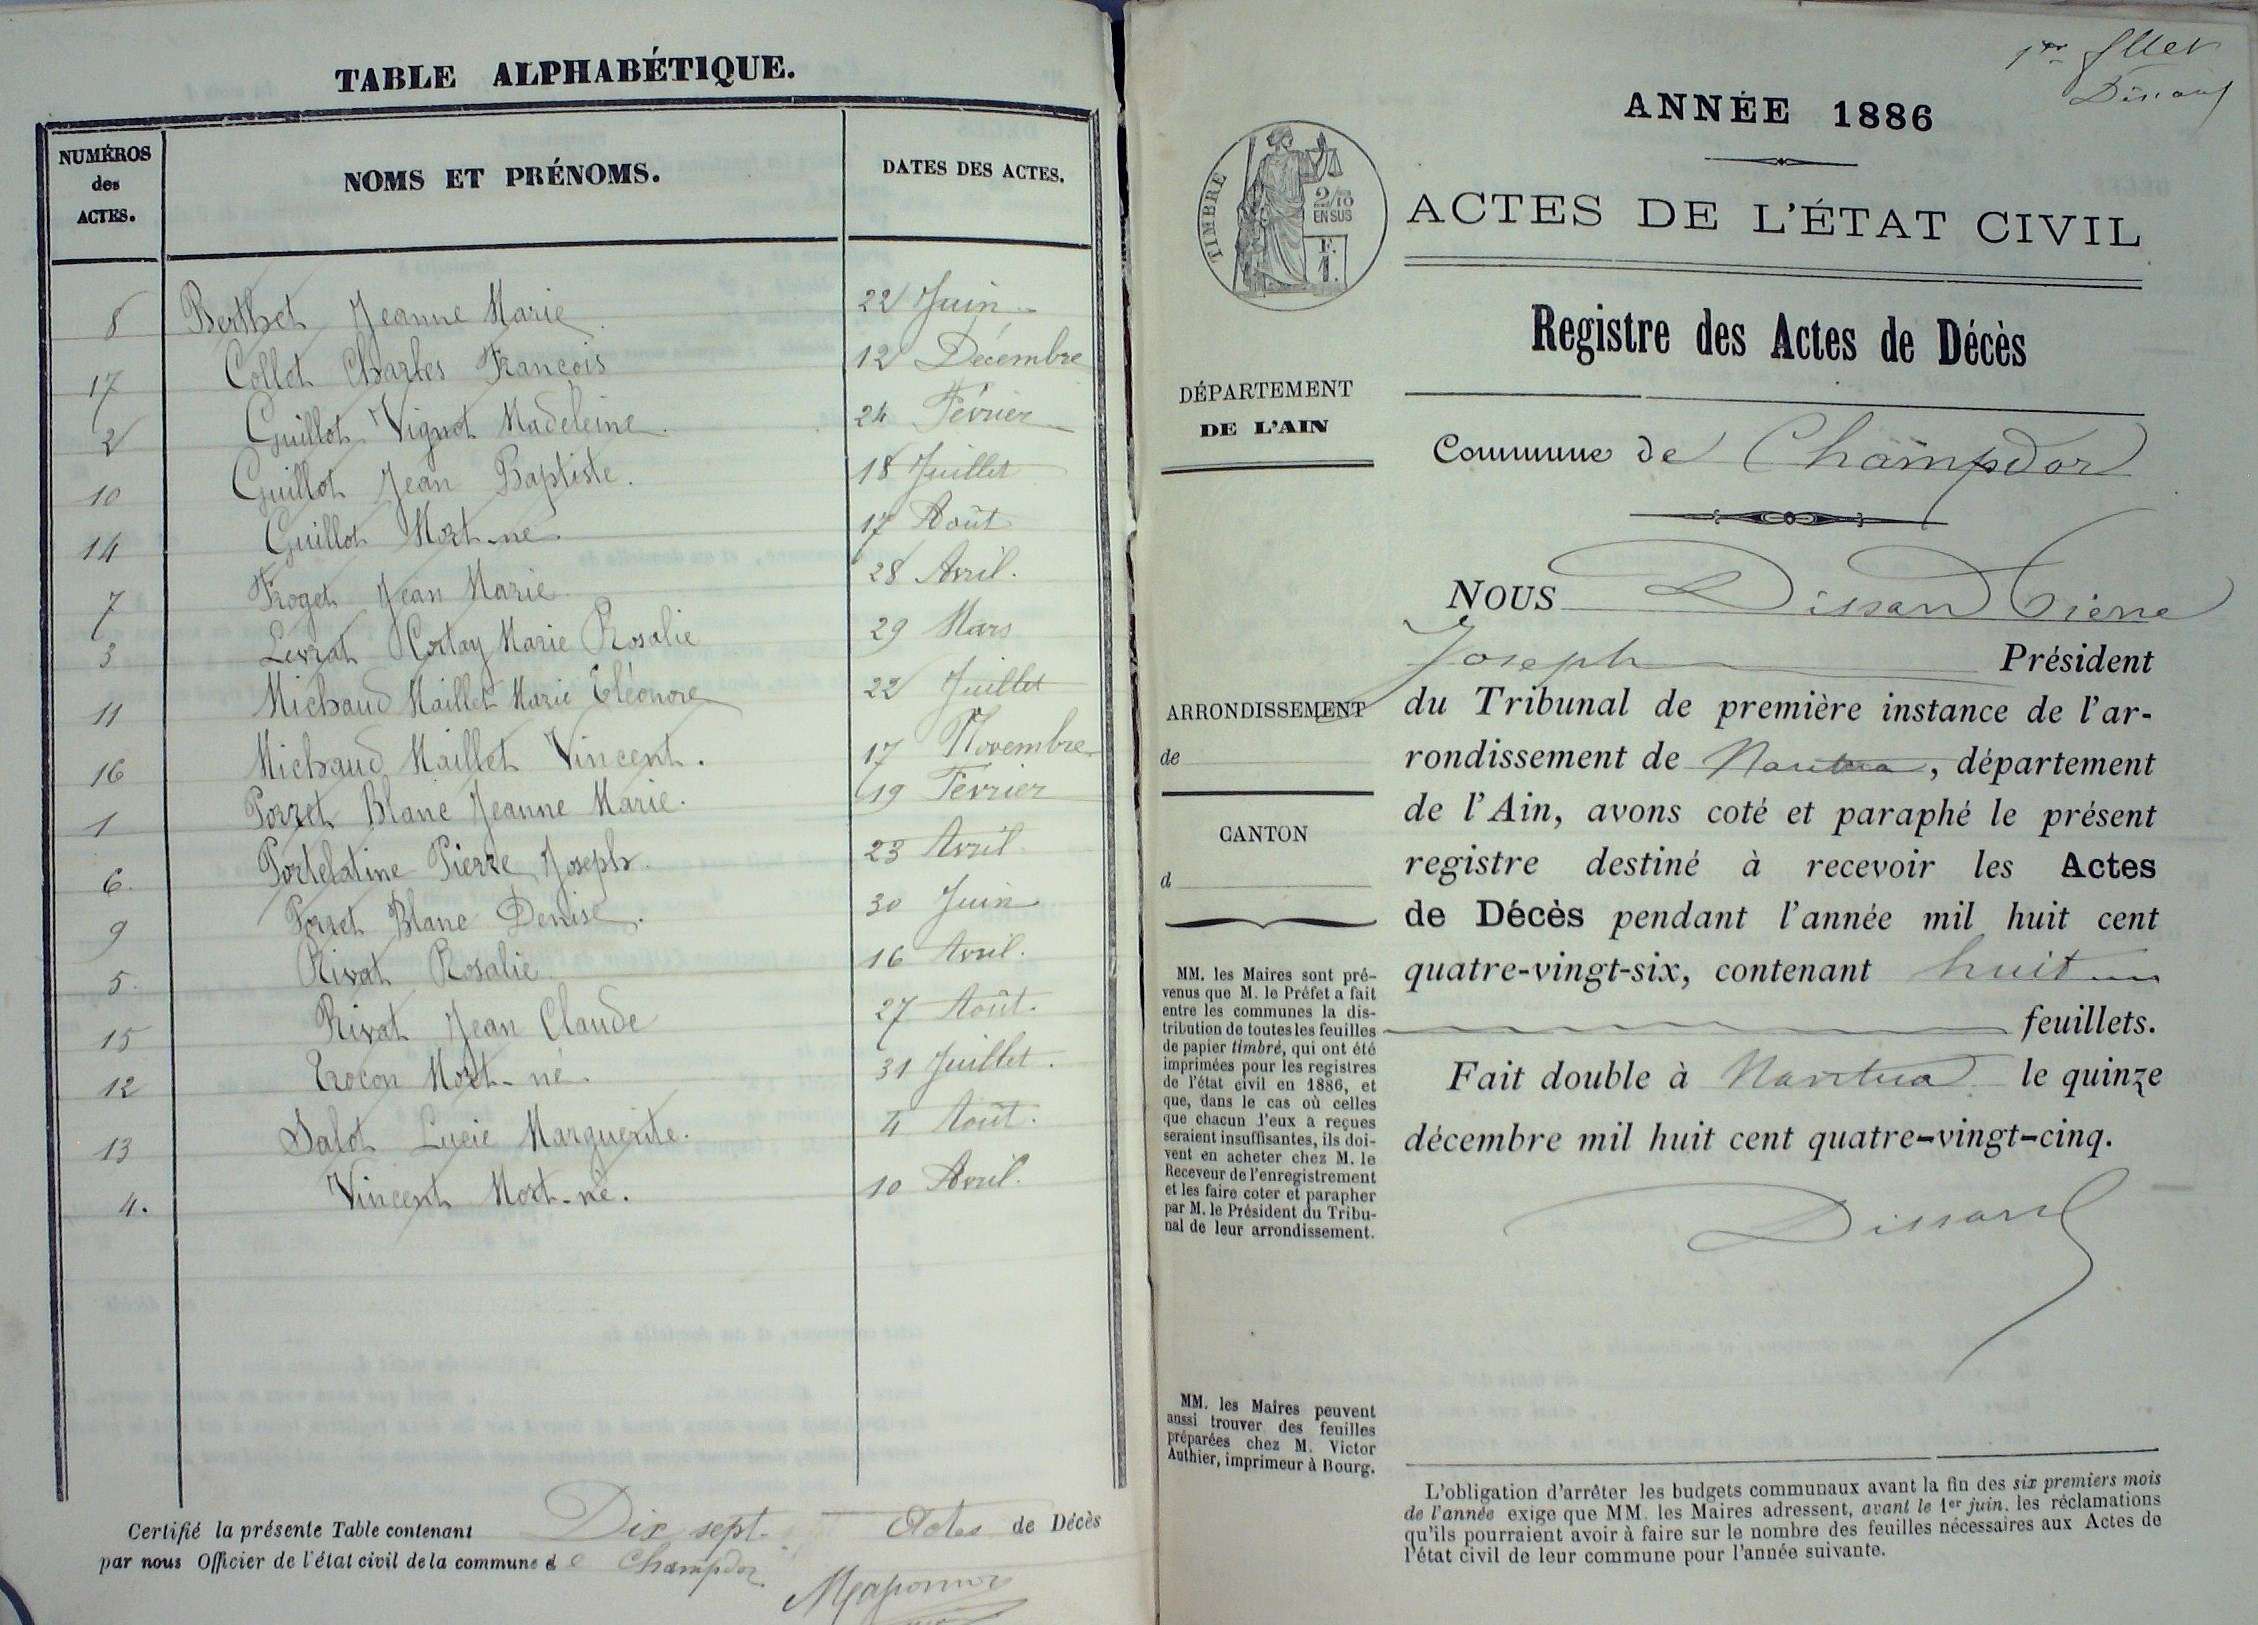 TABLE ALPHABÉTIQUE.
NUMÉROS des ACTES. NOMS ET PRÉNOMS. DATES DES ACTES.
8 Berthet Jeanne Marie 22 Juin
17 Collet Charles François 12 Décembre
2 Guillot Vignot Madeleine. 24 Février
10 Guillot Jean Baptiste. 18 Juillet
14 Guillot Mort-né 17 Août
7 Froget Jean Marie 28 Avril.
3 Levrat Cortay Marie Rosalie 29 Mars
11 Michaud Maillet Marie Eléonore 22 Juillet
16 Michaud Maillet Vincent. 17 Novembre
1 Porret Blanc Jeanne Marie. 19 Février
6. Portelatine Pierre Joseph. 23 Avril
9 Porret Blanc Denise. 30 Juin
5. Rivat Rosalie 16 Avril.
15 Rivat Jean Claude 27 Août.
12 Trocon Mort-né. 31 Juillet.
13 Salot Lucie Marguerite. 4 Août.
4. Vincent Mort-né. 10 Avril.
Certifié la présente Table contenant Dix sept Actes de Décès
par nous Officier de l'état civil de la commune de Champdor
1er fllet
Dissard
ANNÉE 1886
TIMBRE
2/10
EN SUS
F.
1.
ACTES DE L'ÉTAT CIVIL
Registre des Actes de Décès
DÉPARTEMENT
DE L'AIN
Commune de Champdor
NOUS Dissard Pierre
Joseph Président
ARRONDISSEMENT
de
CANTON
d
du Tribunal de première instance de l'ar-
rondissement de Nantua, département
de l'Ain, avons coté et paraphé le présent
registre destiné à recevoir les Actes
de Décès pendant l'année mil huit cent
quatre-vingt-six, contenant huit
feuillets.
Fait double à Nantua le quinze
décembre mil huit cent quatre-vingt-cinq.
Dissard
MM. les Maires sont pré-
venus que M. le Préfet a fait
entre les communes la dis-
tribution de toutes les feuilles
de papier timbré, qui ont été
imprimées pour les registres
de l'état civil en 1886, et
que, dans le cas où celles
que chacun d'eux a reçues
seraient insuffisantes, ils doi-
vent en acheter chez M. le
Receveur de l'enregistrement
et les faire coter et parapher
par M. le Président du Tribu-
nal de leur arrondissement.
MM. les Maires peuvent
aussi trouver des feuilles
préparées chez M. Victor
Authier, imprimeur à Bourg.
L'obligation d'arrêter les budgets communaux avant la fin des six premiers mois
de l'année exige que MM. les Maires adressent, avant le 1er juin, les réclamations
qu'ils pourraient avoir à faire sur le nombre des feuilles nécessaires aux Actes de
l'état civil de leur commune pour l'année suivante.